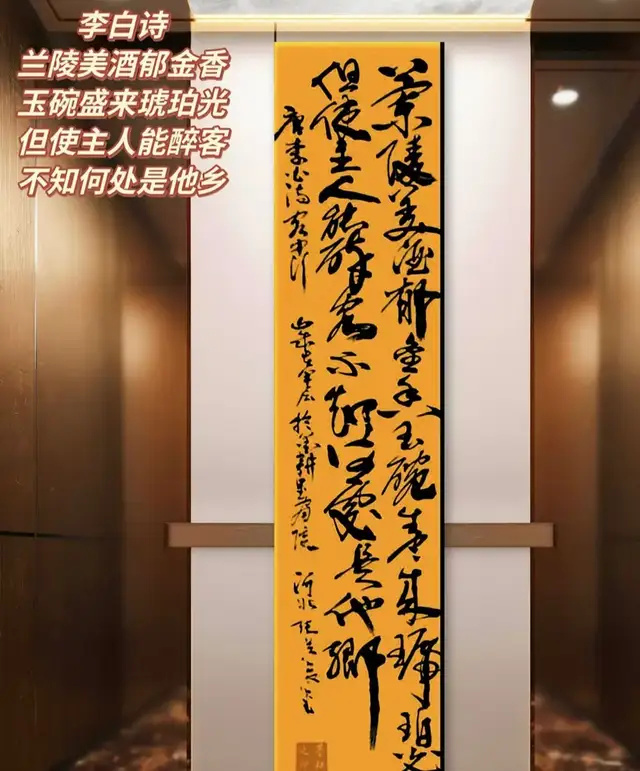 李白诗
兰陵美酒郁金香
玉碗盛来琥珀光
但使主人能醉客
不知何处是他乡
蘭陵美酒郁金香玉碗盛来琥珀光
但使主人能醉客不知何處是他鄉
唐李白诗客中行